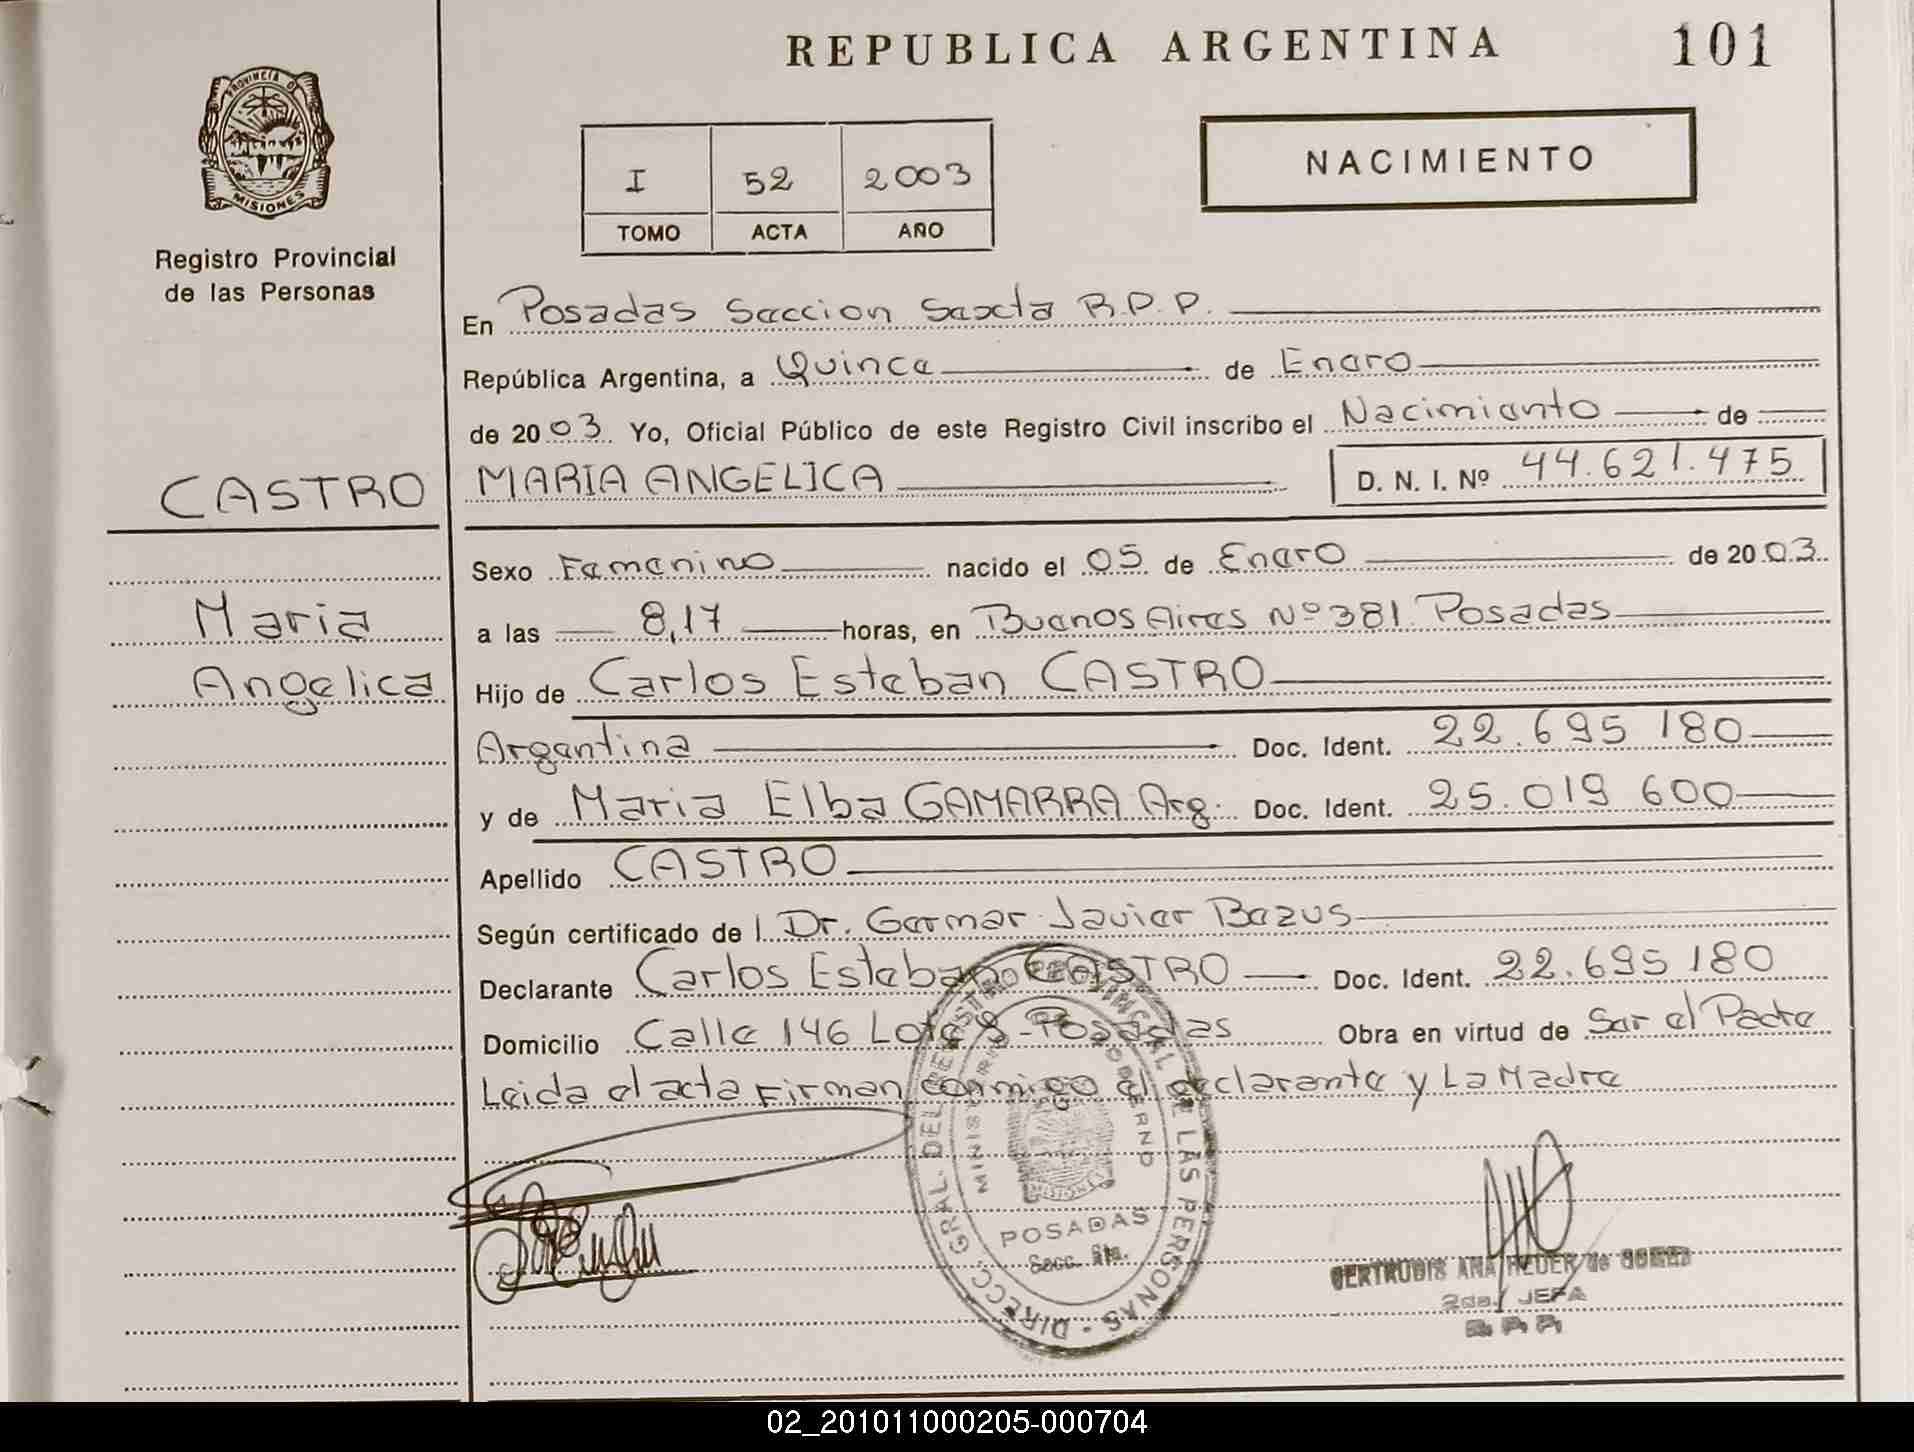 REPUBLICA ARGENTINA
101
PROVINCIA D
MISIONES
Registro Provincial
de las Personas
I 52 2003
TOMO ACTA AÑO
NACIMIENTO
En Posadas Seccion Sexta R.P.P.
República Argentina, a Quince de Enero
de 2003. Yo, Oficial Público de este Registro Civil inscribo el Nacimiento de
CASTRO
MARIA ANGELICA
D. N. I. Nº 44.621.475
Sexo Femenino nacido el 05 de Enero de 2003.
Maria
a las 8,17 horas, en Buenos Aires Nº 381 Posadas
Angelica
Hijo de Carlos Esteban CASTRO
Argentina Doc. Ident. 22.695 180
y de Maria Elba GAMARRA Arg. Doc. Ident. 25.019 600
Apellido CASTRO
Según certificado de l Dr. German Javier Bazus
Declarante Carlos Esteban CASTRO Doc. Ident. 22.695 180
Domicilio Calle 146 Lote 8 - Posadas Obra en virtud de Ser el Padre
Leida el acta Firman conmigo el declarante y La Madre
DIRECC. GRAL. DEL REGISTRO PROVINCIAL DE LAS PERSONAS
POSADAS
Secc. 6ta.
GERTRUDIS ANA REDER de GOMEZ
2da. JEFA
R. P. P.
02_201011000205-000704